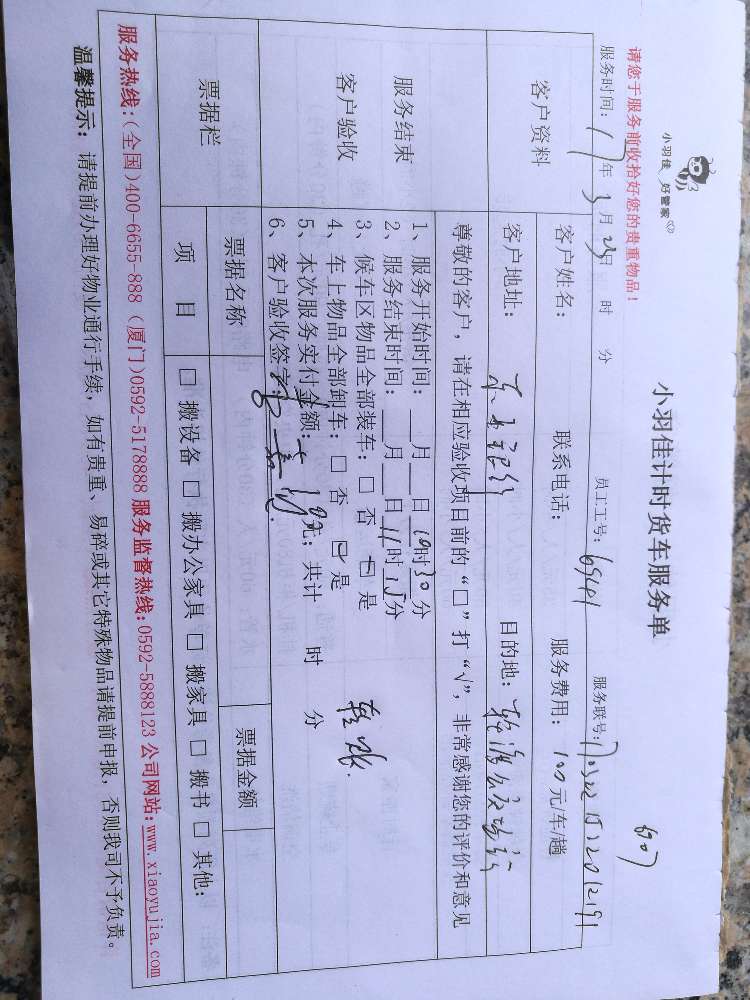 小羽佳 好管家
小羽佳计时货车服务单
请您于服务前收拾好您的贵重物品！
服务时间：17年3月23日 时 分 员工工号：6941 服务联号：
客户资料
客户姓名： 联系电话： 服务费用：100元/车/趟
客户地址： 目的地：
尊敬的客户，请在相应验收项目前的“□”打“√”，非常感谢您的评价和意见
服务结束
客户验收
1、服务开始时间： 月 日10时30分
2、服务结束时间： 月 日11时15分
3、候车区物品全部装车：□ 否 □ 是
4、车上物品全部卸车：□ 否 □ 是
5、本次服务实付金额： 元；共计 时 分
6、客户验收签字：
票据栏
票据名称 票据金额
项 目 □ 搬设备 □ 搬办公家具 □ 搬家具 □ 搬书 □ 其他：
服务热线：(全国)400-6655-888 (厦门)0592-5178888 服务监督热线：0592-5888123 公司网站：www.xiaoyujia.com
温馨提示：请提前办理好物业通行手续，如有贵重、易碎或其它特殊物品请提前申报，否则我司不予负责。